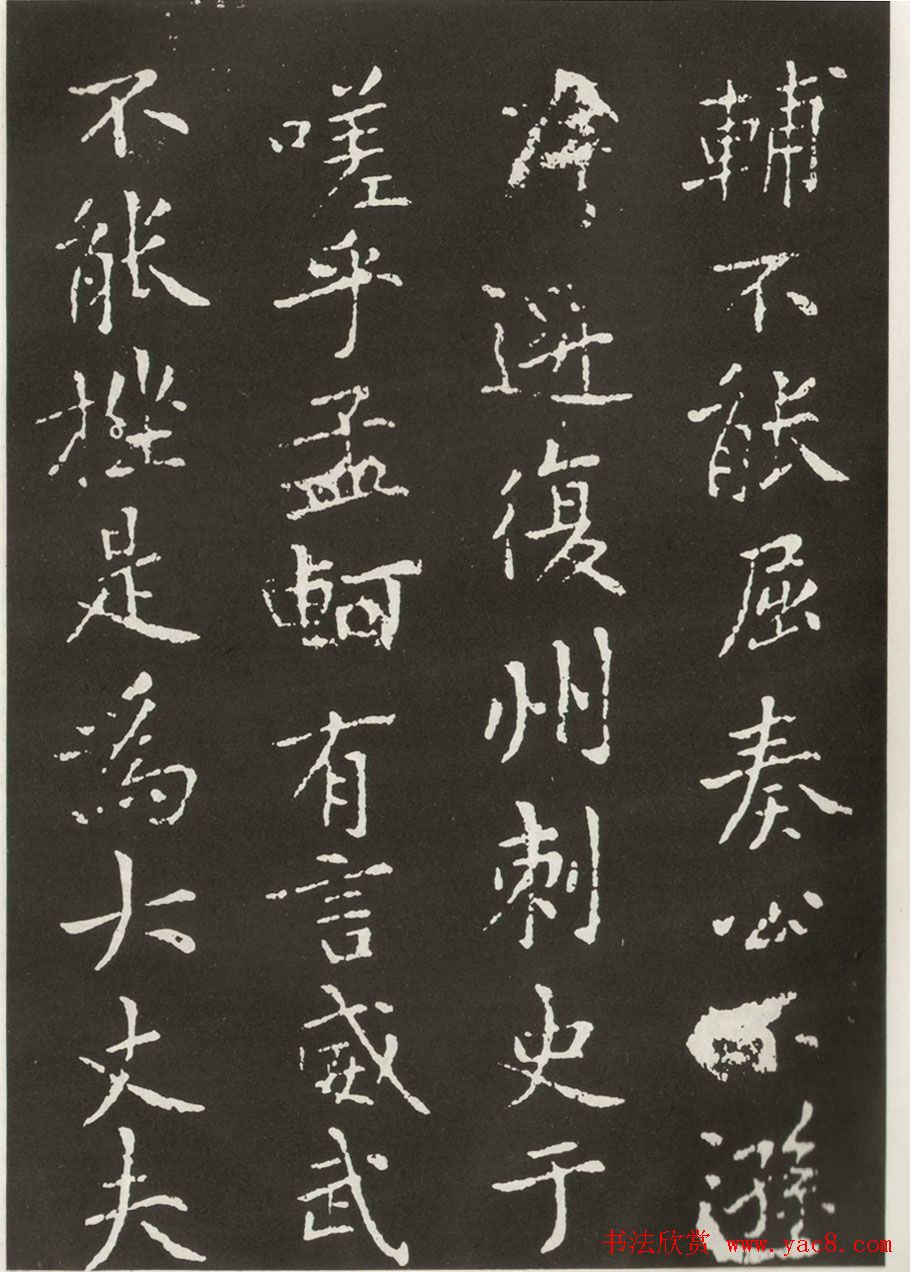 輔不能屈奏公不遜
復州刺史于
嗟乎孟軻有言威武
不能挫是為大丈夫
书法欣赏 www.yac8.com